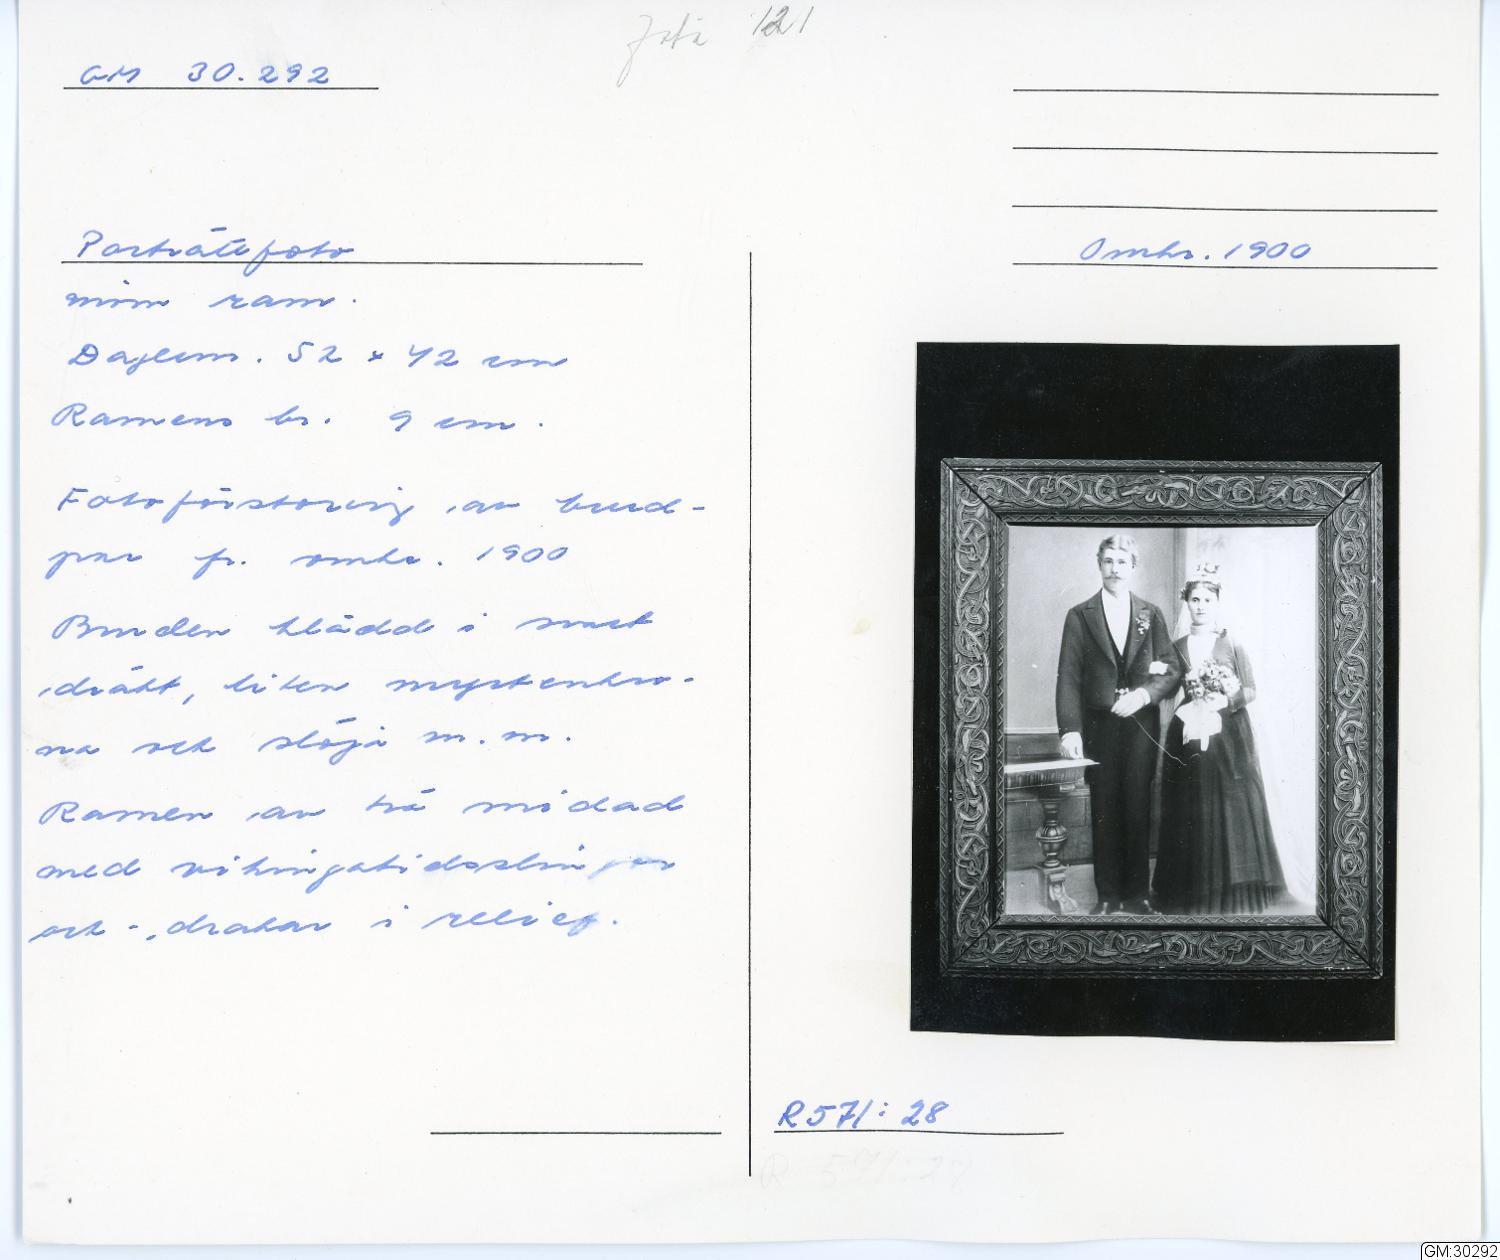 foto 121
GM 30.292
Omkr. 1900
Porträttfoto
inom ram.
Daglem. 52 x 42 cm
Ramens br. 9 cm.
Fotoförstoring av brud-
par fr. omkr. 1900
Bruden klädd i svart
dräkt, liten myrtenkro-
na och slöja m.m.
Ramen av trä
med vikingatidsslingor
och -drakar i relief.
R571:28
R 571:27
GM:30292